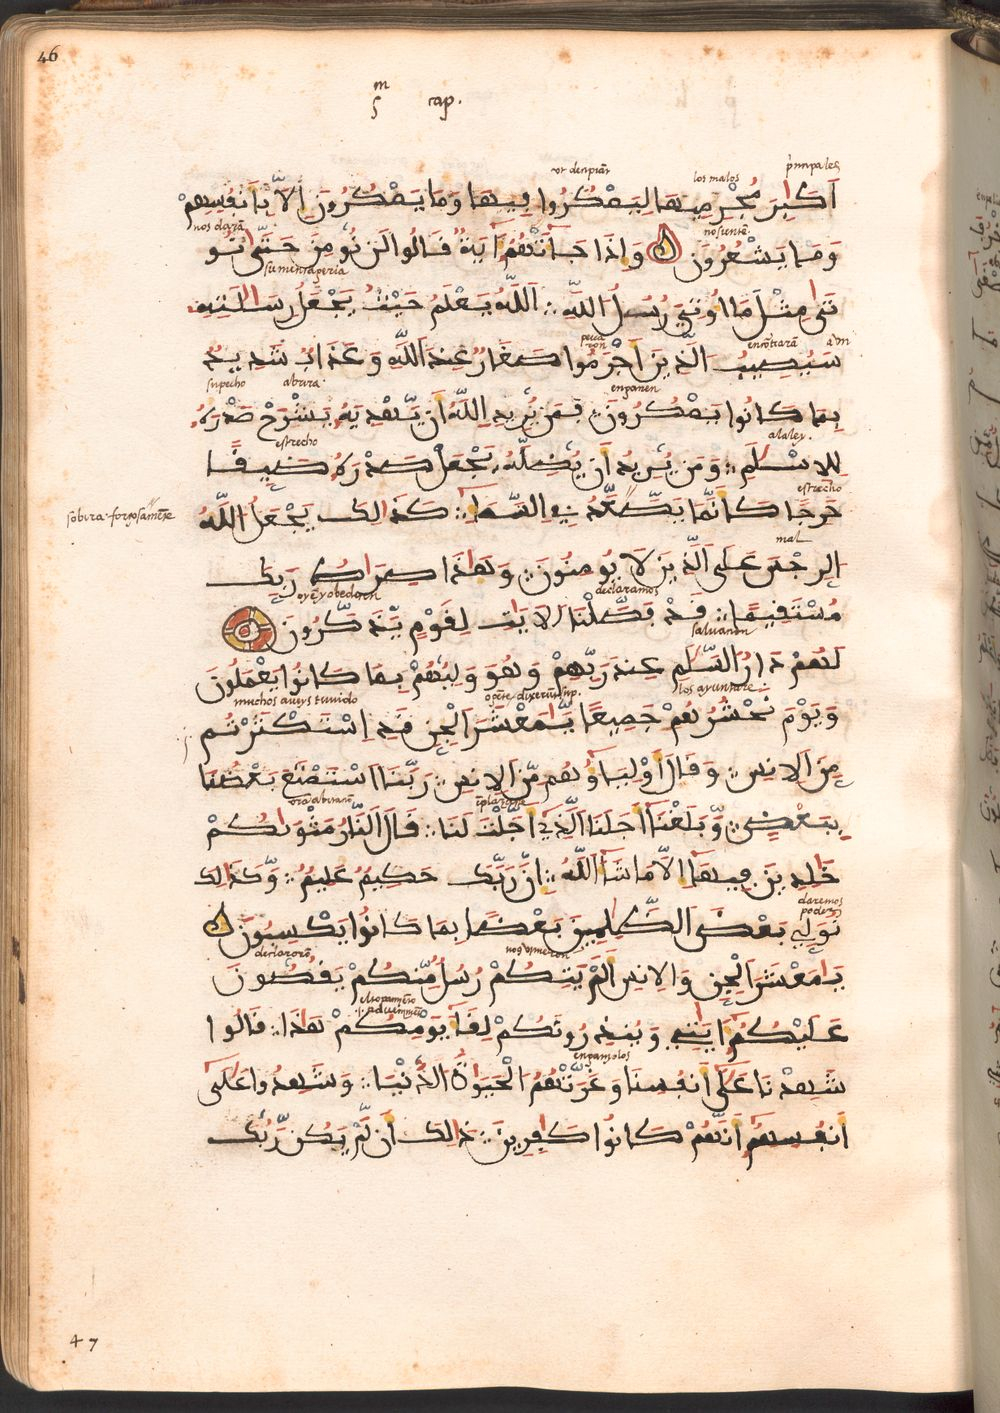 46
m
5 cap.
prinnpales
los malos
اَكَٰبِرَ مُجْرِمِيهَا لِيَمْكُرُوا فِيهَا وَمَا يَمْكُرُونَ إِلَّا بِأَنفُسِهِمْ
nos dara
no siente
وَمَا يَشْعُرُونَ وَإِذَا جَآءَتْهُمُ ءَايَةٌ قَالُوا لَن نُّومِنَ حَتَّىٰ نُو
تَىٰ مِثْلَ مَا أُوتِيَ رُسُلُ اللَّهِ اَللَّهُ يَعْلَمُ حَيْثُ يَجْعَلُ رِسَالَٰتِهِ
سَيُصِيبُ الَّذِينَ أَجْرَمُوا صَغَارٌ عِندَ اللَّهِ وَعَذَابٌ شَدِيدٌ
supecho abrira
enganen
بِمَا كَانُوا يَمْكُرُونَ فَمَن يُرِدِ اِللَّهُ أَن يَّهْدِيَهُ يَشْرَحْ صَدْرَهُ
estrecho
alaley.
لِلْإِسْلَٰمِ وَمَن يُرِدْ أَن يُضِلَّهُ يَجْعَلْ صَدْرَهُ ضَيِّقًا
estrecho
حَرِجًا كَأَنَّمَا يَصَّعَّدُ فِي السَّمَآءِ كَذَٰلِكَ يَجْعَلُ اللَّهُ
sobira fortosamete
mal
اِلرِّجْسَ عَلَى الَّذِينَ لَا يُومِنُونَ وَهَٰذَا صِرَاطُ رَبِّكَ
declaramos
مُسْتَقِيمًا قَدْ فَصَّلْنَا الْآيَٰتِ لِقَوْمٍ يَذَّكَّرُونَ
salvanon
لَهُمْ دَارُ السَّلَٰمِ عِندَ رَبِّهِمْ وَهُوَ وَلِيُّهُم بِمَا كَانُوا يَعْمَلُونَ
muchos aveys tuvido
los ayuntare
وَيَوْمَ نَحْشُرُهُمْ جَمِيعًا يَٰمَعْشَرَ الْجِنِّ قَدِ اِسْتَكْثَرْتُم
مِّنَ الْإِنسِ وَقَالَ أَوْلِيَآؤُهُم مِّنَ الْإِنسِ رَبَّنَا اَسْتَمْتَعَ بَعْضُنَا
بِبَعْضٍ وَبَلَغْنَآ أَجَلَنَا الَّذِي أَجَّلْتَ لَنَا قَالَ النَّارُ مَثْوَىٰكُمْ
خَٰلِدِينَ فِيهَآ إِلَّا مَا شَآءَ اللَّهُ إِنَّ رَبَّكَ حَكِيمٌ عَلِيمٌ وَكَذَٰلِكَ
daremos
poder
نُوَلِّي بَعْضَ الظَّٰلِمِينَ بَعْضًا بِمَا كَانُوا يَكْسِبُونَ
يَٰمَعْشَرَ الْجِنِّ وَالْإِنسِ أَلَمْ يَاتِكُمْ رُسُلٌ مِّنكُمْ يَقُصُّونَ
عَلَيْكُمُ ءَايَٰتِي وَيُنذِرُونَكُمْ لِقَآءَ يَوْمِكُمْ هَٰذَا قَالُوا
enganolos
شَهِدْنَا عَلَىٰ أَنفُسِنَا وَغَرَّتْهُمُ الْحَيَوٰةُ الدُّنْيَا وَشَهِدُوا عَلَىٰ
أَنفُسِهِمُ أَنَّهُمْ كَانُوا كَٰفِرِينَ ذَٰلِكَ أَن لَّمْ يَكُن رَّبُّكَ
47